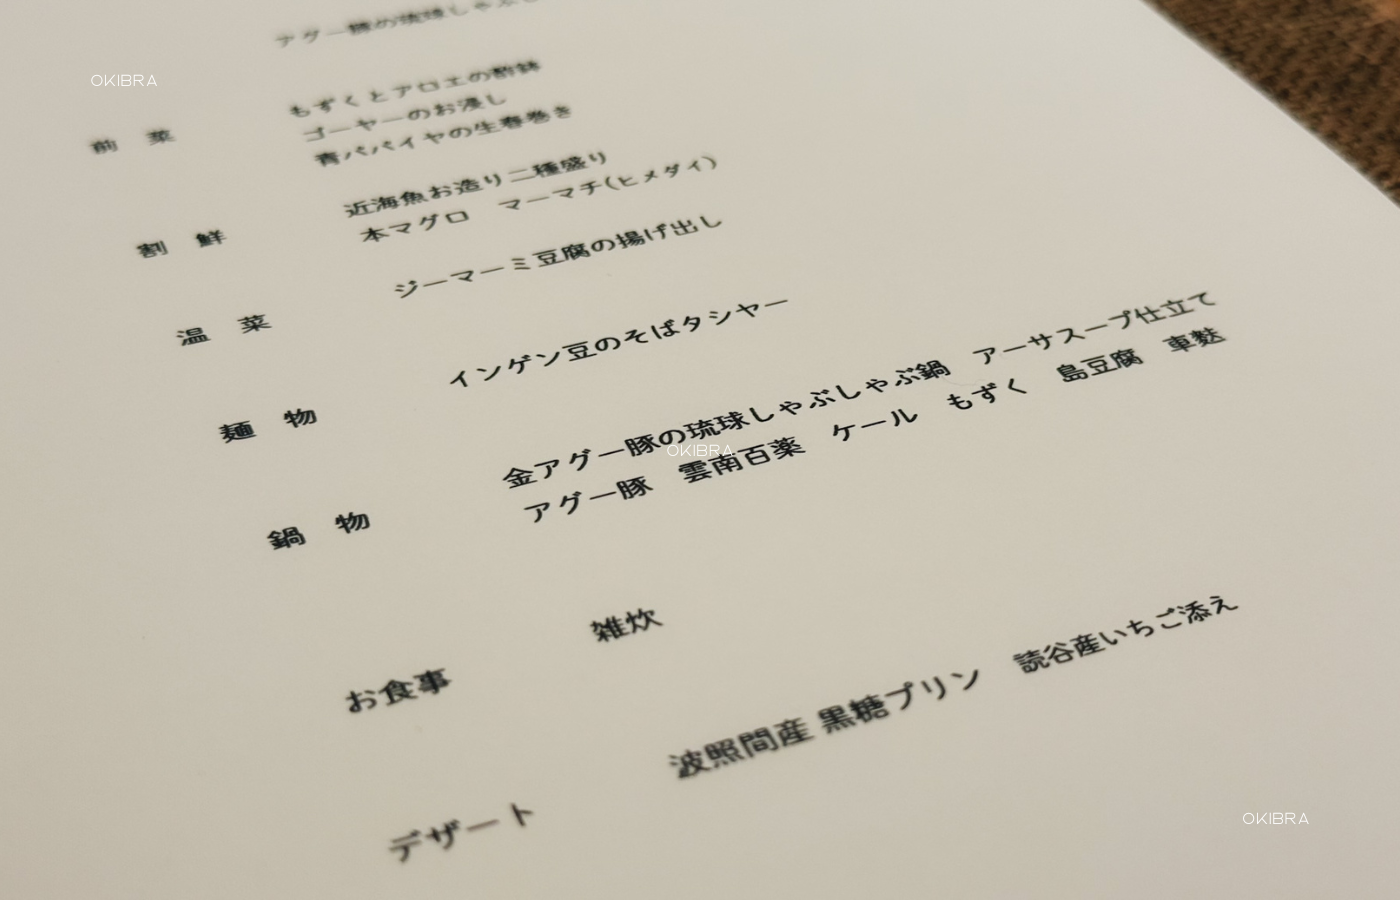 アグー豚の琉球しゃぶし
OKIBRA
前 菜 もずくとアロエの酢鉢
ゴーヤーのお浸し
青パパイヤの生春巻き
割 鮮 近海魚お造り二種盛り
本マグロ マーマチ(ヒメダイ)
温 菜 ジーマーミ豆腐の揚げ出し
麺 物 インゲン豆のそばタシヤー
鍋 物 金アグー豚の琉球しゃぶしゃぶ鍋 アーサスープ仕立て
OKIBRA
アグー豚 雲南百薬 ケール もずく 島豆腐 車麩
お食事 雑炊
デザート 波照間産 黒糖プリン 読谷産いちご添え
OKIBRA